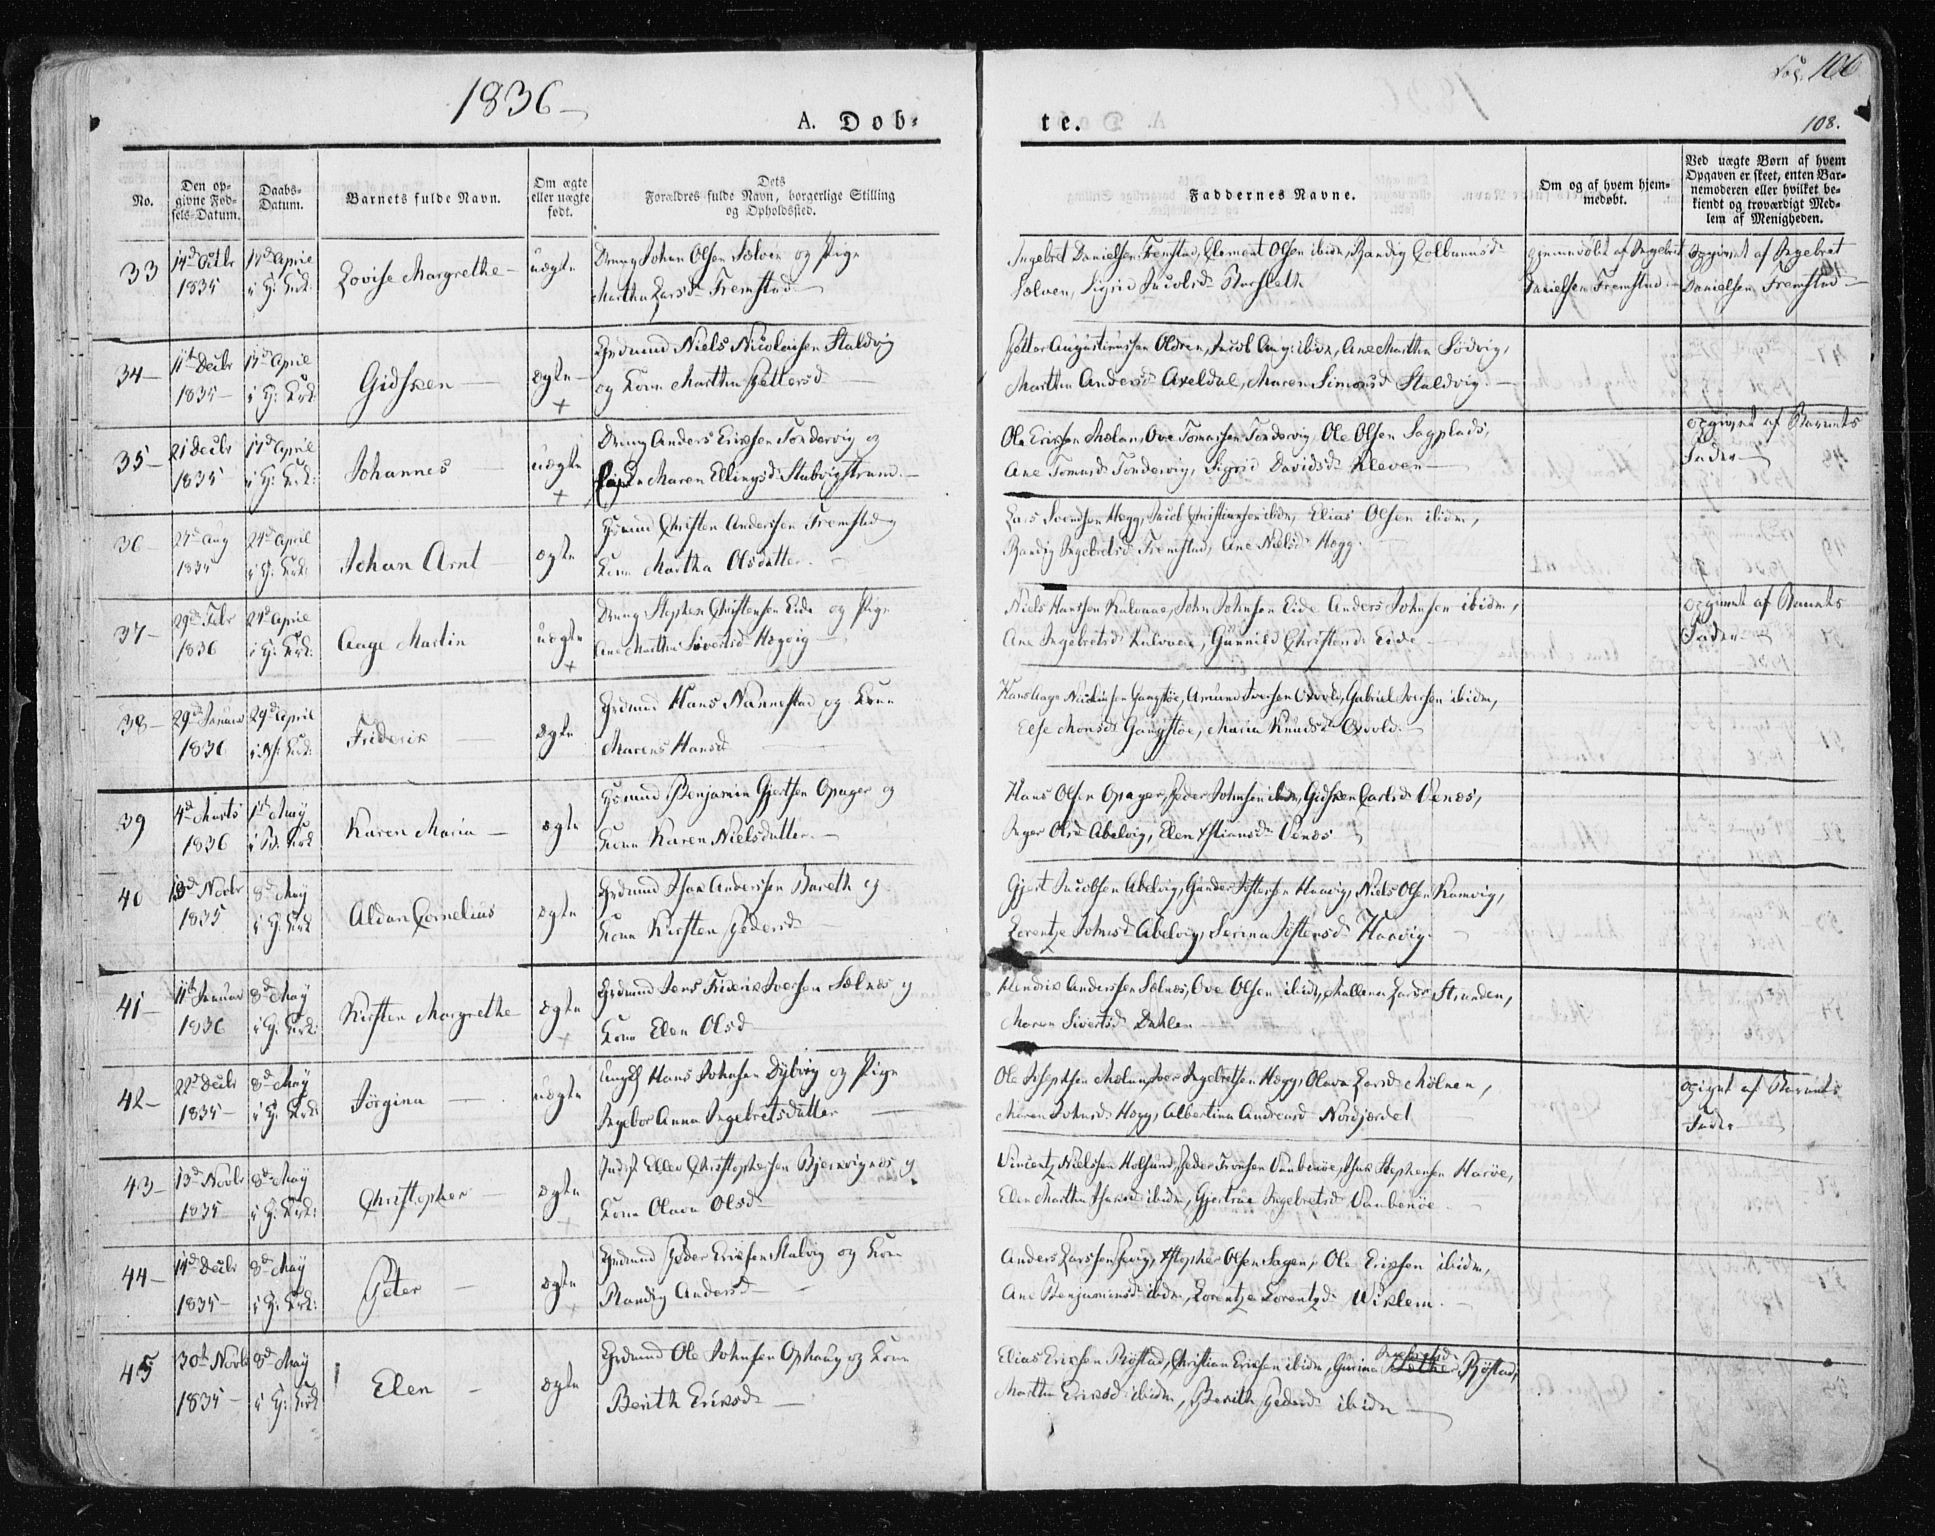 1836
Fol. 106
A. Dob-
te.
108.
No.
Den op-
givne Fød-
sels-Datum.
Daabs-
Datum.
Barnets fulde Navn.
Om ægte
eller uægte
født.
Dets
Forældres fulde Navn, borgerlige Stilling
og Opholdssted.
Faddernes Navne.
Om og af hvem hjem-
medøbt.
Ved uægte Børn af hvem
Opgaven er skeet, enten Bar-
nemoderen eller hvilket be-
kiendt og troværdigt Med-
lem af Menigheden.
33
1835
Lovise Margrethe
uægte
Johan Olsen Sælven og Pige
Martha Larsd. Fremstad
Ingebret Danielsen Fremstad, Clement Olsen ibidm, Randig
Sælven, Sigrid Jacobsd.
hjemmedøbt af Ingebret
Danielsen Fremstad
opgivet af Ingebret
Danielsen Fremstad
34
11t Decbr 17d April
1835 i Hj: Kirk:
Gidsken
ægte
Grdmand Niels Nicolaisen Staldvig
og Kone Martha Pettersd
Petter Augustinussen Oldren, Jacob ibidm, Ane Martha Sødvig,
Martha Andersd Axeldal, Maren Simonsd Staldvig.
35
21 Decbr 17d April
1835
Johannes
uægte
Dreng Anders Eriksen Tondervig og
Pige Maren Ellingsd Stubvigstrand.
Ole Eriksen Mælan, Ove Tomassen Tondervig, Ole Olsen Sagplads,
Ane Tomasd Tondervig, Sigrid Davidsd Kleven
opgivet af Barnets
Fader
36
27d Aug 24d April
1835
Johan Arnt
ægte
Husmand Christen Andersen Fremstad og
Kone Martha Olsdatter.
Lars Svendsen Hægg, Jacob Christiansen ibidm, Elias Olsen ibidm,
Randig Ingebretsd. Fremstad, Ane Nielsd Hægg.
37
29d Febr 24d April
1836
Aage Martin
uægte
Dreng Stephen Christensen Eide og Pige
Ane Martha Sivertsd Hegvig
Niels Hanssen Kulvaae, John Johnsen Eide Anders Johnsen ibidm,
Ane Ingebretsd Kulvaae, Gunnild Christensd Eide
opgivet af Barnets
Fader
38
29d Januar 29d April
1836
Friderik
ægte
Grdmand Hans Nannestad og Kone
Maren Hansd
Hans Aage Gangstøe, Amund Iversen Oxvold, Gabriel Iversen ibidm,
Else Monsd Gangstøe, Maria Knudsd Oxvold.
39
4d Marts 1st May
1836
Karen Maria
ægte
Husmand Benjamin Gjertsen Opager og
Kone Karen Nielsdatter.
Hans Olsen Opager, Peder Johnsen ibidm, Gidsken Carlsd Venæs,
Inger Olsd Abelvig, Elen Xstiansd Venæs
40
13d Novbr 8d May
1835
Aldan Cornelius
ægte
Grdmand Isak Andersen Bareth og
Kone Kirsten Pedersd
Gjert Jacobsen Abelvig, Gunder Haavig, Niels Olsen Ramvig,
Lorentze Johnsd Abelvig, Serina Haavig.
41
11t Januar 8d May
1836
Kirsten Margrethe
ægte
Grdmand Jens Friderik Iversen Sælnæs og
Kone Elen Olsd
Hendrik Andersen Sælnæs, Ove Olsen ibidm, Mallena Larsd Stranden,
Maren Sivertsd Dahlen
42
22d Decbr 8d May
1835
Jörgina
uægte
Ungk Hans Johnsen Dybvig og Pige
Ingebor Anna Ingebretsdatter
Ole Josephsen Mælan, Iver Ingebretsen Hægg, Olava Larsd Mølnen,
Maren Johnsd Hægg, Albertina Andreasd Nordfjordet
opgivet af Barnets
Fader
43
13d Novbr 8d May
1835
Christopher
ægte
Inds: Eller Christophersen Bjernvignæs og
Kone Olava Olsd
Vincentz Nielsen Holsund, Peder Tronsen Vaabenøe, Isak Stephensen Harøe,
Elen Martha ibidm, Gjertrue Ingebretsd Vaabenøe
44
11t Decbr 8d May
1835
Peter
ægte
Grdmand Peder Eriksen Stalvig og Kone
Randig Andersd
Anders Larssen, Xstopher Olsen Sagen, Ole Eriksen ibidm,
Ane Benjaminsd ibidm, Lorentze Lorentzd Wiklem.
45
30t Novbr 8d May
1835
Elen
ægte
Grdmand Ole Johnsen Ophaug og Kone
Berith Eriksd
Elias Eriksen Røstad, Christian Eriksen ibidm, Gurina Røstad,
Martha Eriksd ibidm, Berith Pedersd ibidm